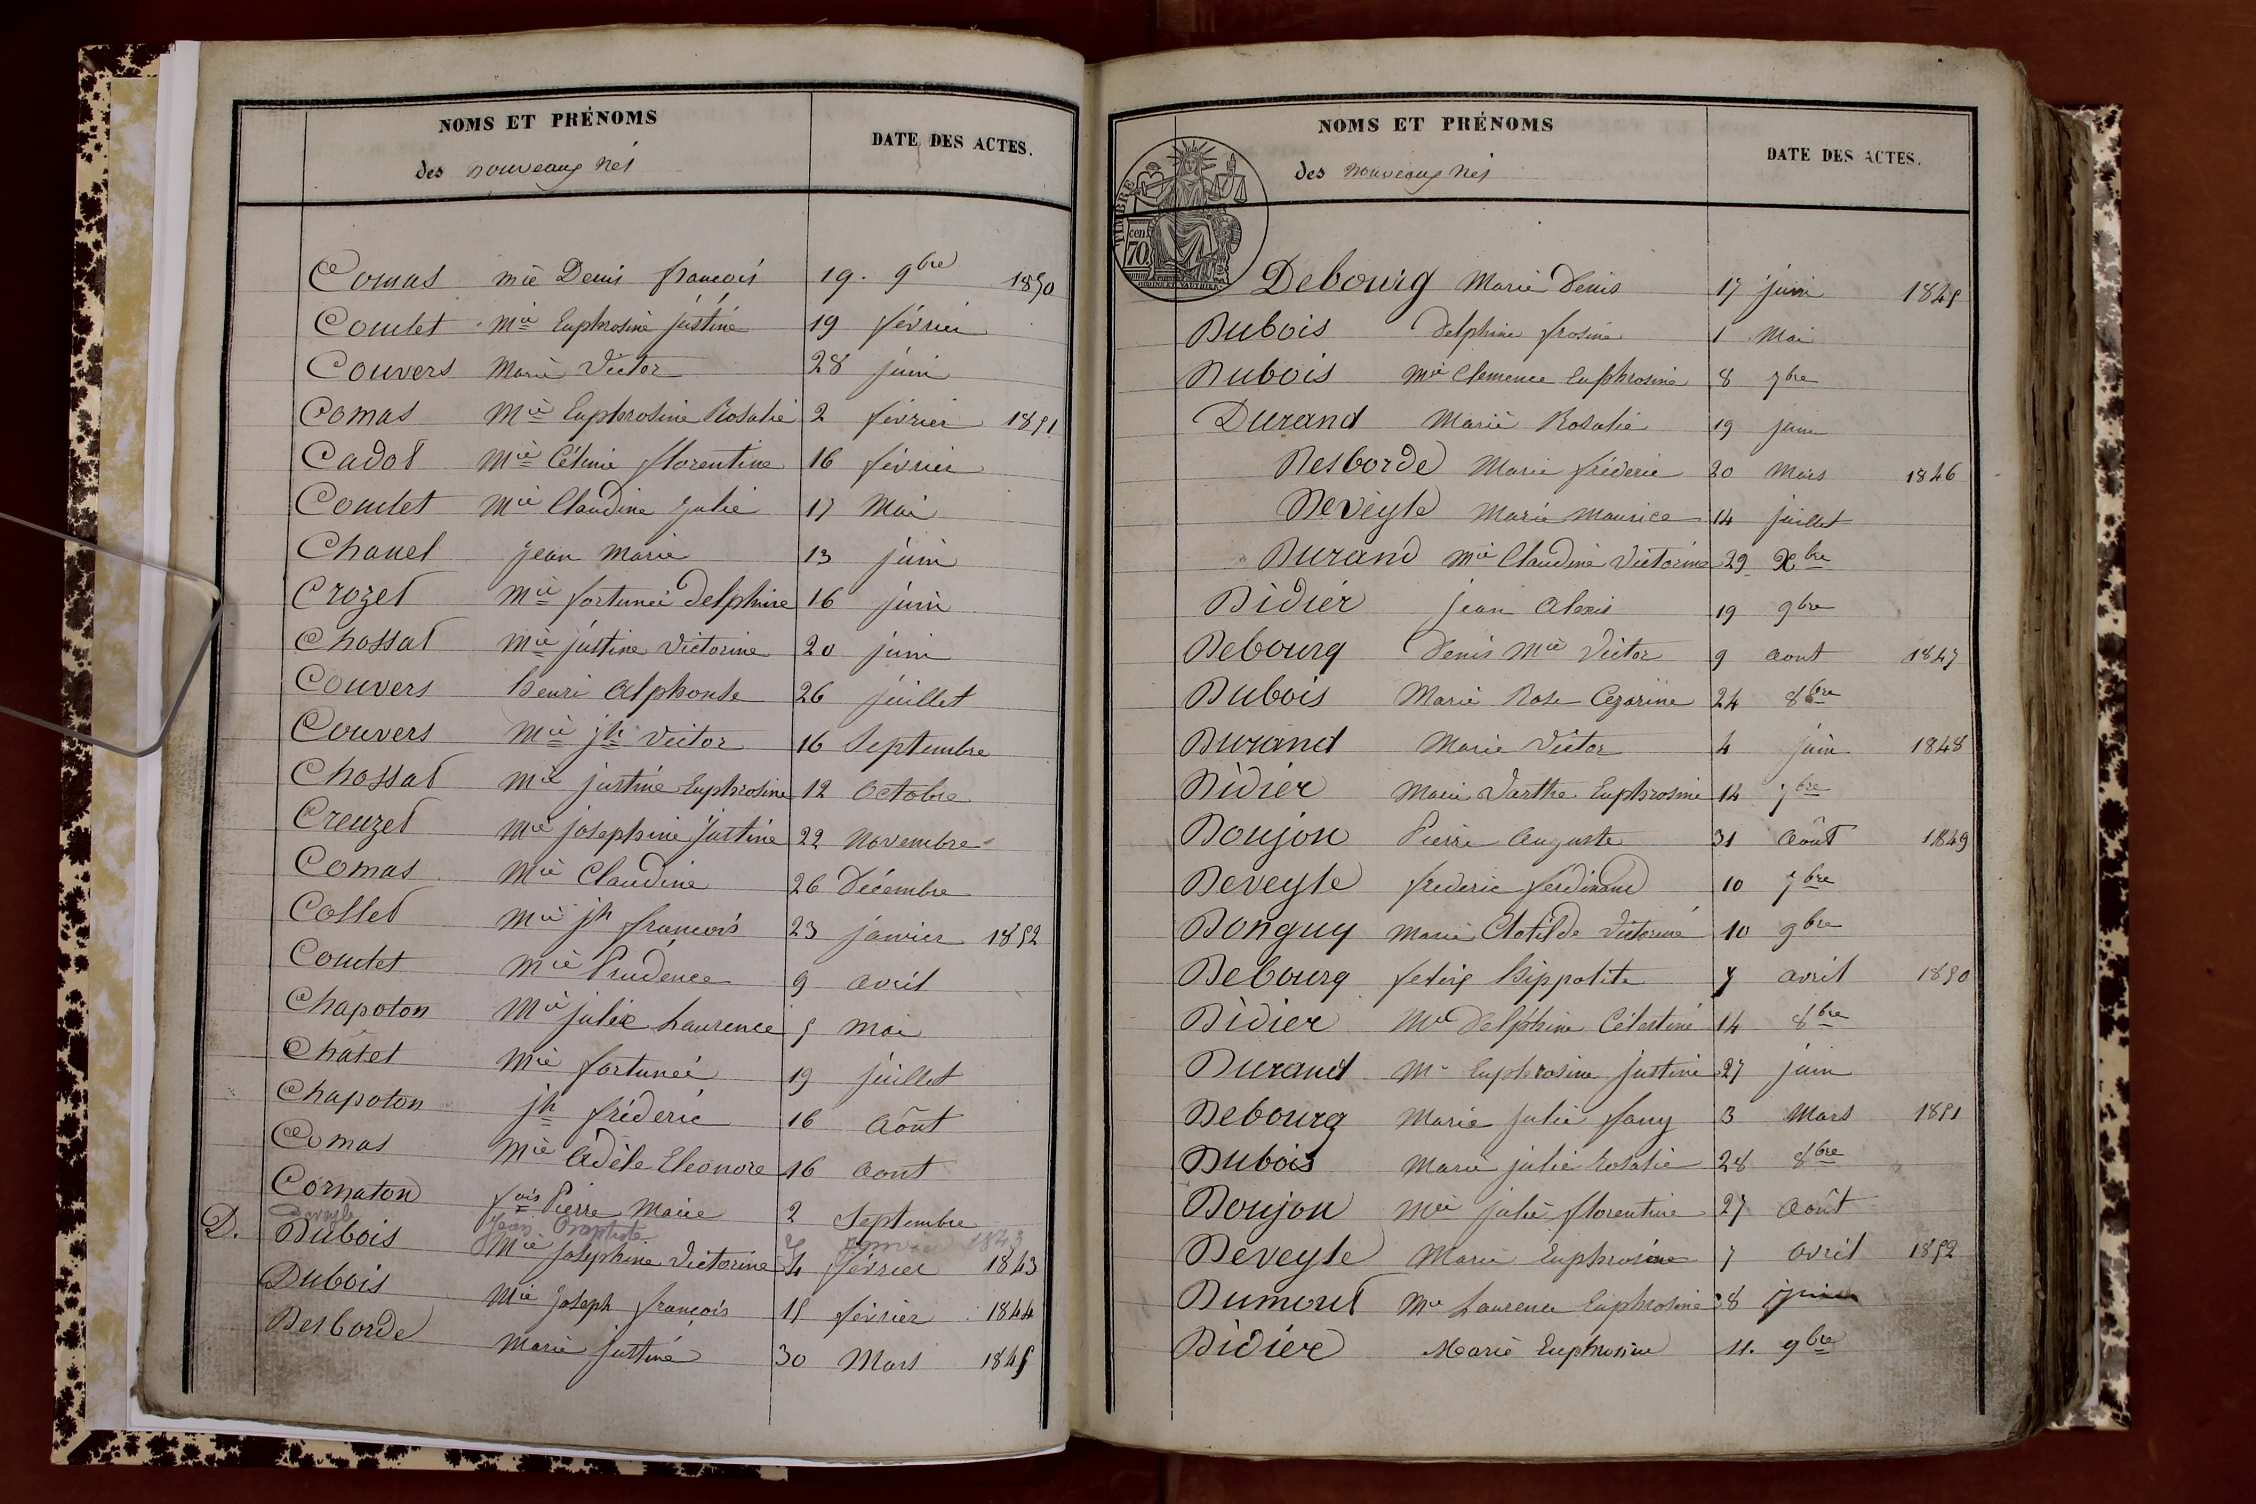 NOMS ET PRÉNOMS
des nouveaux nés
DATE DES ACTES.
Comas mie Denis françois 19. 9bre 1850
Coulet Mie Euphrosine justine 19 février
Couvers Marie Victor 28 juin
Comas Mie Euphrosine Rosalie 2 février 1851
Cadot Mie Célinie florentine 16 février
Coulet Mie Claudine Julie 17 Mai
Chanel Jean Marie 13 juin
Crozet Mie fortunée Delphine 16 juin
Chossat Mie justine Victorine 20 juin
Couvers henri Alphonse 26 juillet
Couvers Mie jh Victor 16 Septembre
Chossat Mie justine Euphrosine 12 Octobre
Creuzet Mie josephine justine 22 Novembre
Comas Mie Claudine 26 Décembre
Collet Mie jh françois 23 janvier 1852
Coulet Mie Prudence 9 avril
Chapoton Mie julie Laurence 5 Mai
Châtel Mie fortunée 19 juillet
Chapoton jh fréderic 16 Août
Comas Mie Adèle Eleonore 16 aout
Cornaton fois Pierre Marie 2 Septembre
Deveyle Jean Baptiste 2 janvier 1843
D. Dubois Mie Josephine Victorine 4 février 1843
Dubois Mie Joseph françois 15 février 1844
Desborde Marie justine 30 Mars 1845
NOMS ET PRÉNOMS
des nouveaux nés
DATE DES ACTES.
TIMBRE
cent
70
Debourg Marie Denis 17 juin 1845
Dubois Delphine frosine 1 Mai
Dubois Mie Clemence Euphrosine 8 7bre
Durand Marie Rosalie 19 juin
Desborde Marie fréderic 20 Mars 1846
Deveyle Marie Maurice 14 juillet
Durand Mie Claudine Victorine 29 Xbre
Didier Jean Alexis 19 9bre
Debourg Denis Mie Victor 9 aout 1847
Dubois Marie Rose Cezarine 24 8bre
Durand Marie Victor 4 juin 1848
Didier Marie Marthe Euphrosine 14 7bre
Doujon Pierre Auguste 31 Août 1849
Deveyle frederic ferdinand 10 7bre
Donguy Marie Clotilde Victorine 10 9bre
Debourg felix hippolite 7 avril 1850
Didier Mie Delphine Célestine 14 8bre
Durand Mie Euphrosine justine 27 juin
Debourg Marie Julie fany 3 Mars 1851
Dubois Marie julie Rosalie 28 8bre
Doujon Mie julie florentine 27 Août
Deveyle Marie Euphrosine 7 avril 1852
Dumont Mie Laurence Euphrosine 28 juin
Didier Marie Euphrosine 11. 9bre